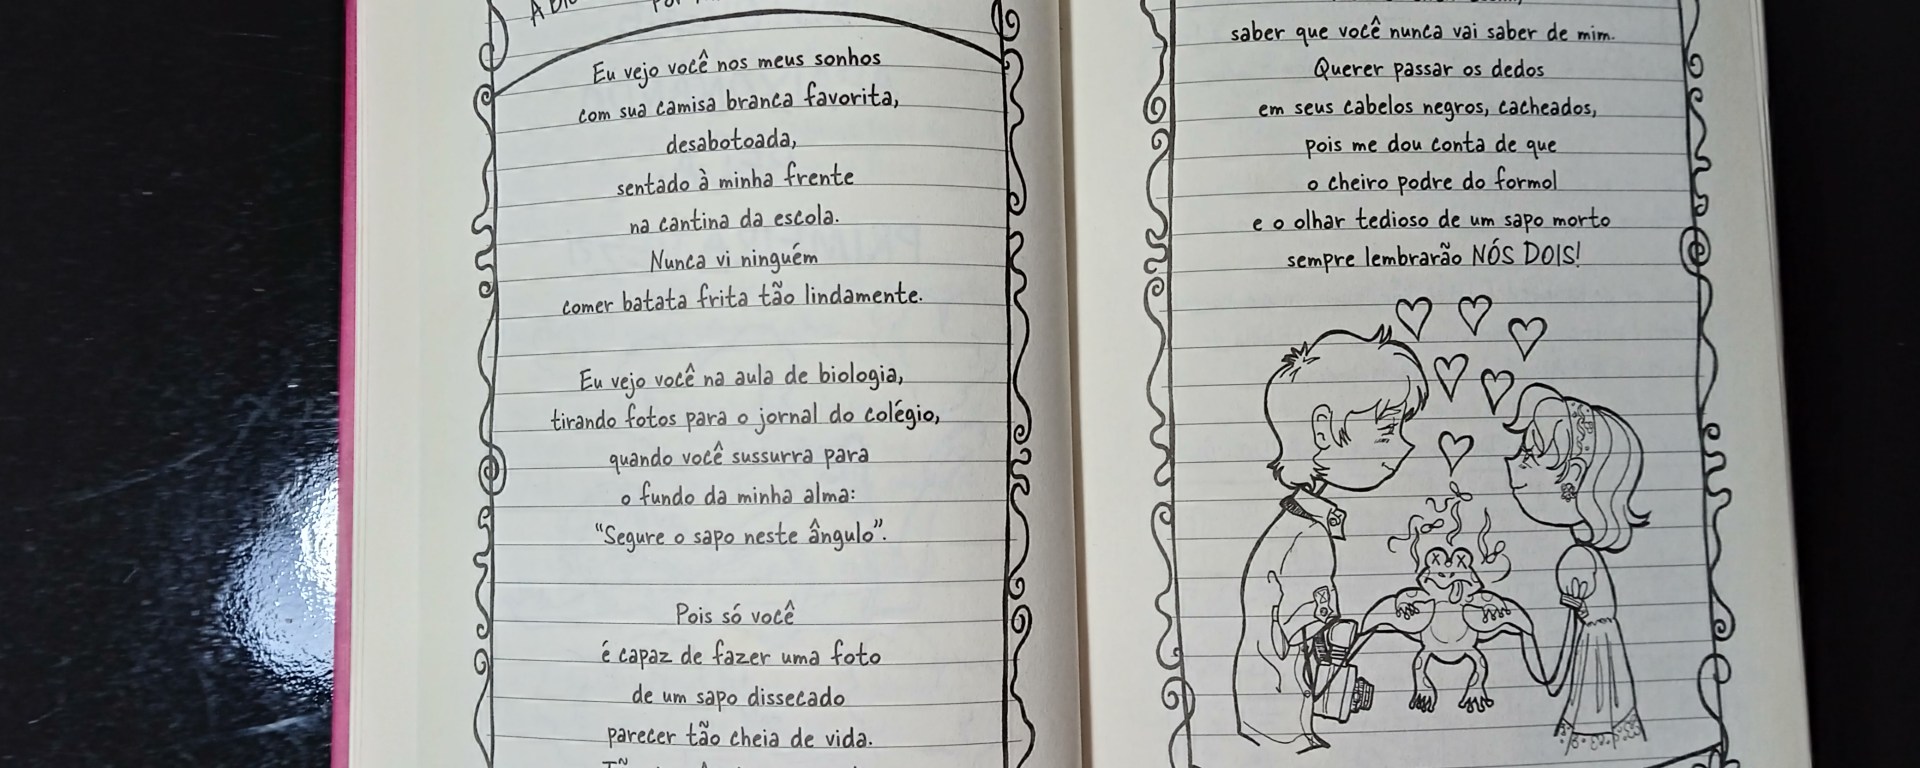 Eu vejo você nos meus sonhos
com sua camisa branca favorita,
desabotoada,
sentado à minha frente
na cantina da escola.
Nunca vi ninguém
comer batata frita tão lindamente.
Eu vejo você na aula de biologia,
tirando fotos para o jornal do colégio,
quando você sussurra para
o fundo da minha alma:
“Segure o sapo neste ângulo”.
Pois só você
é capaz de fazer uma foto
de um sapo dissecado
parecer tão cheia de vida.
saber que você nunca vai saber de mim.
Querer passar os dedos
em seus cabelos negros, cacheados,
pois me dou conta de que
o cheiro podre do formol
e o olhar tedioso de um sapo morto
sempre lembrarão NÓS DOIS!